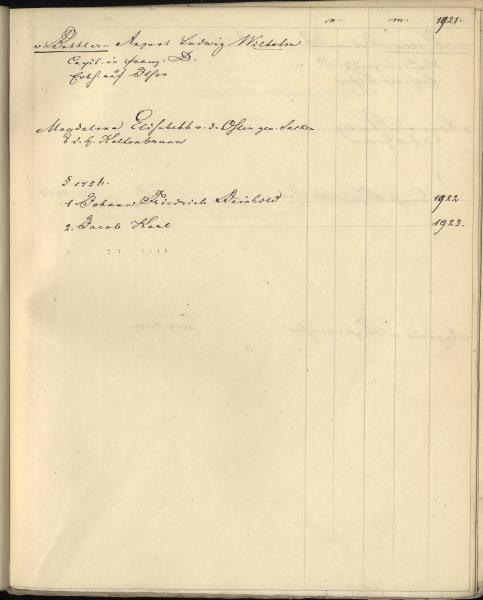 v. m. 1921.
v. Buttlar August Ludwig Wilhelm
Capit. in franz. D.
Erbh. auf Olsen
Magdalena Elisabeth v. d. Osten gen. Sacken
a. d. H. Kaltenbrunn
§ 1756.
1. Johann Friedrich Reinhold 1922
2. Jacob Karl 1923.